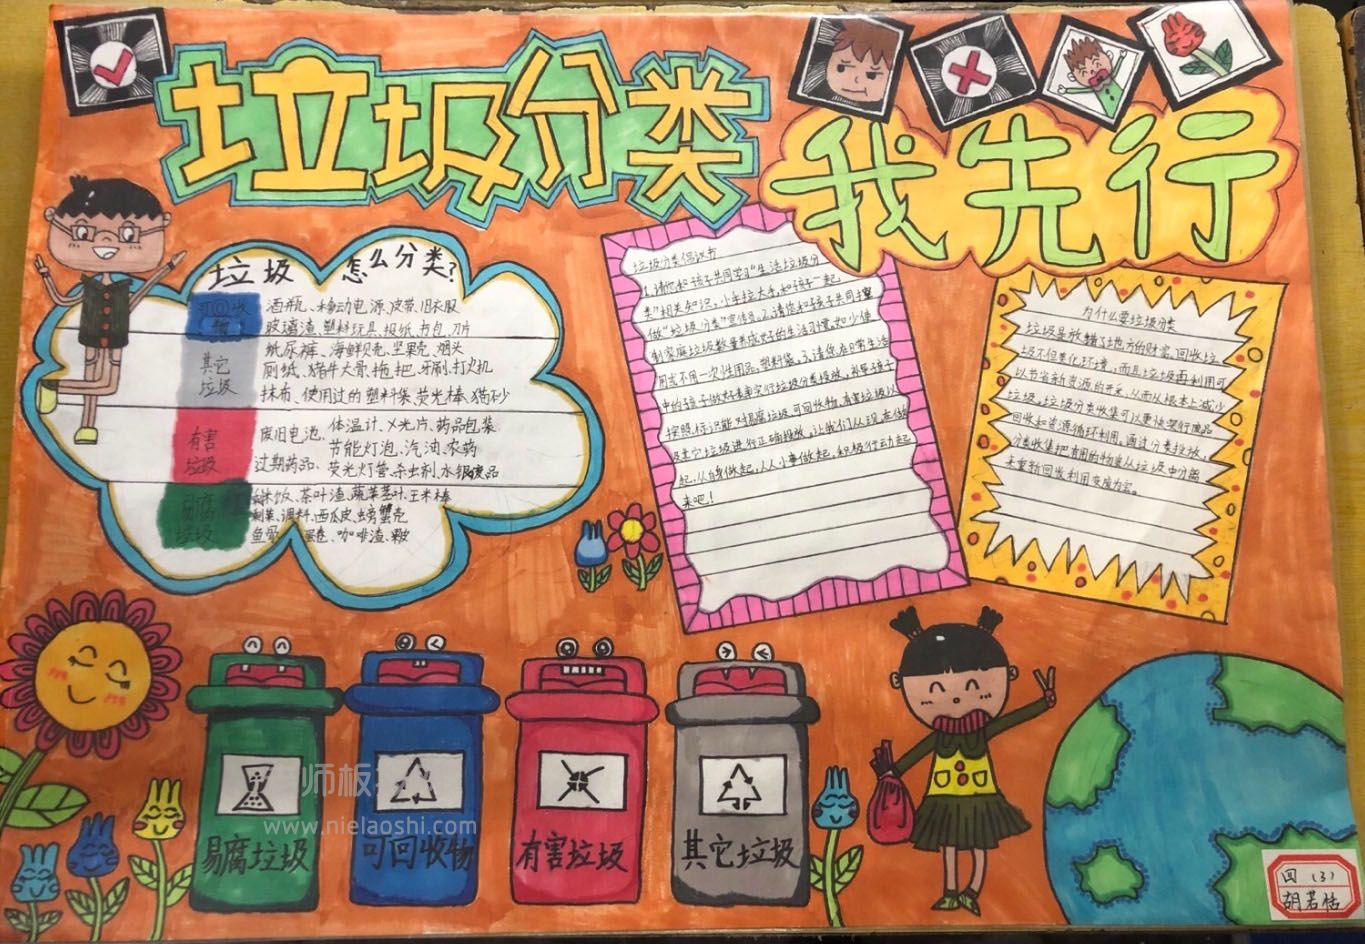 垃圾分类
我先行
垃圾怎么分类?
可回收
物
酒瓶、移动电源、皮带、旧衣服
玻璃渣、塑料玩具、报纸、书包、刀片
其它
垃圾
纸尿裤、海鲜贝壳、坚果壳、烟头
厕纸、猪牛大骨、拖把、牙刷、打火机
抹布、使用过的塑料袋、荧光棒、猫砂
有害
垃圾
废旧电池、体温计、X光片、药品包装
节能灯泡、汽油、农药
过期药品、荧光灯管、杀虫剂、水银废品
易腐
垃圾
米饭、茶叶渣、蔬菜茎叶、玉米棒
剩菜、调料、西瓜皮、螃蟹壳
鱼骨、蛋卷、咖啡渣、果皮
垃圾分类倡议书
1.请您和孩子共同学习"生活垃圾分
类"相关知识,小手拉大手,和孩子一起
做"垃圾分类"宣传员。2.请您和孩子共同掌
制家庭垃圾数量养成好的生活习惯,如少使
用或不用一次性用品、塑料袋。3.请您在日常生活
中和孩子做好表率实行垃圾分类投放,引导孩子
按照标识能对易腐垃圾、可回收物、有害垃圾以
及其它垃圾进行正确投放,让我们从现在做
起,从自身做起,从小事做起,积极行动起
来吧!
为什么要垃圾分类
垃圾是放错了地方的财富。回收垃
圾不但美化环境,而且垃圾再利用可
以节省新资源的开采,从而从根本上减少
垃圾。垃圾分类收集可以更快实行废品
回收和资源循环利用。通过分类投放,
分类收集把有用的物资从垃圾中分离
来重新回收利用变废为宝。
易腐垃圾
可回收物
有害垃圾
其它垃圾
师板
www.nielaoshi.com
四(3)
胡若恬